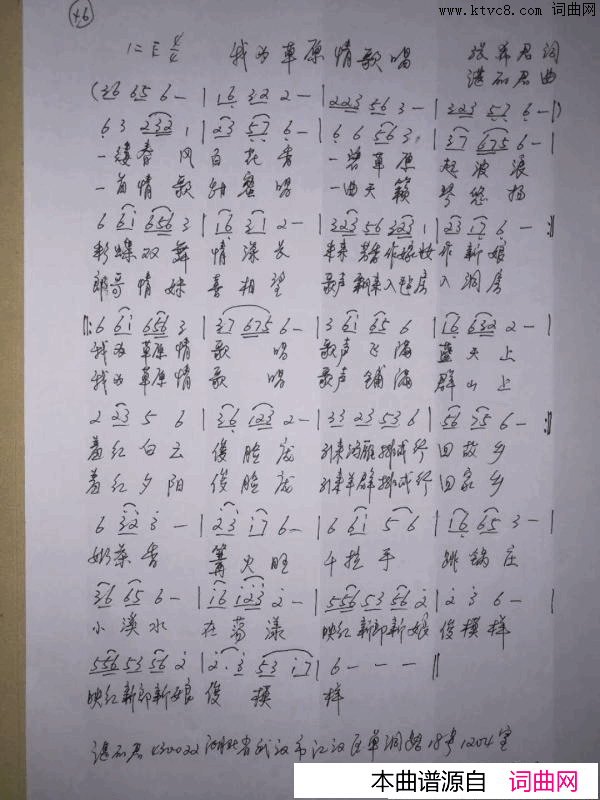 www.ktvc8.com 词曲网
46
1=E 4/4 我为草原情歌唱 张希君词
谌石君曲
(36 65 6 - | 16 32 2 - | 223 56 3 - | 323 57 6 - |)
6 3 232 1 | 23 57 6 - | 6 6 563 | 37 675 6 - |
一缕春风 百花香 一碧草原 起波浪
一首情歌 甜蜜唱 一曲天籁 琴悠扬
6 61 656 3 | 16 31 2 - | 323 56 323 1 | 23 17 6 - :||
彩蝶双舞 情深长 作嫁妆 作新娘
郎哥情妹 喜相望 歌声飘来入毡房 入洞房
||: 6 61 656 3 | 37 675 6 - | 3 61 65 6 | 16 632 2 - |
我为草原情 歌唱 歌声飞满 蓝天上
我为草原情 歌唱 歌声铺满 群山上
2 23 5 6 | 36 123 2 - | 33 23 53 6 | 56 75 6 - :||
羞红白云 俊脸庞 引来鸿雁排成行 回故乡
羞红夕阳 俊脸庞 引来羊群排成行 回家乡
6 32 3 - | 23 17 6 - | 6 61 56 | 16 65 3 - |
奶茶香 篝火旺 手拉手 跳锅庄
36 65 6 - | 16 123 2 - | 556 53 56 2 | 2 3 6 - |
小溪水 在荡漾 映红新郎新娘 俊模样
556 53 56 2 | 2· 3 53 17 | 6 - - - ||
映红新郎新娘 俊模样
谌石君 430022 湖北省武汉市江汉区单洞路18号1204室
本曲谱源自 词曲网